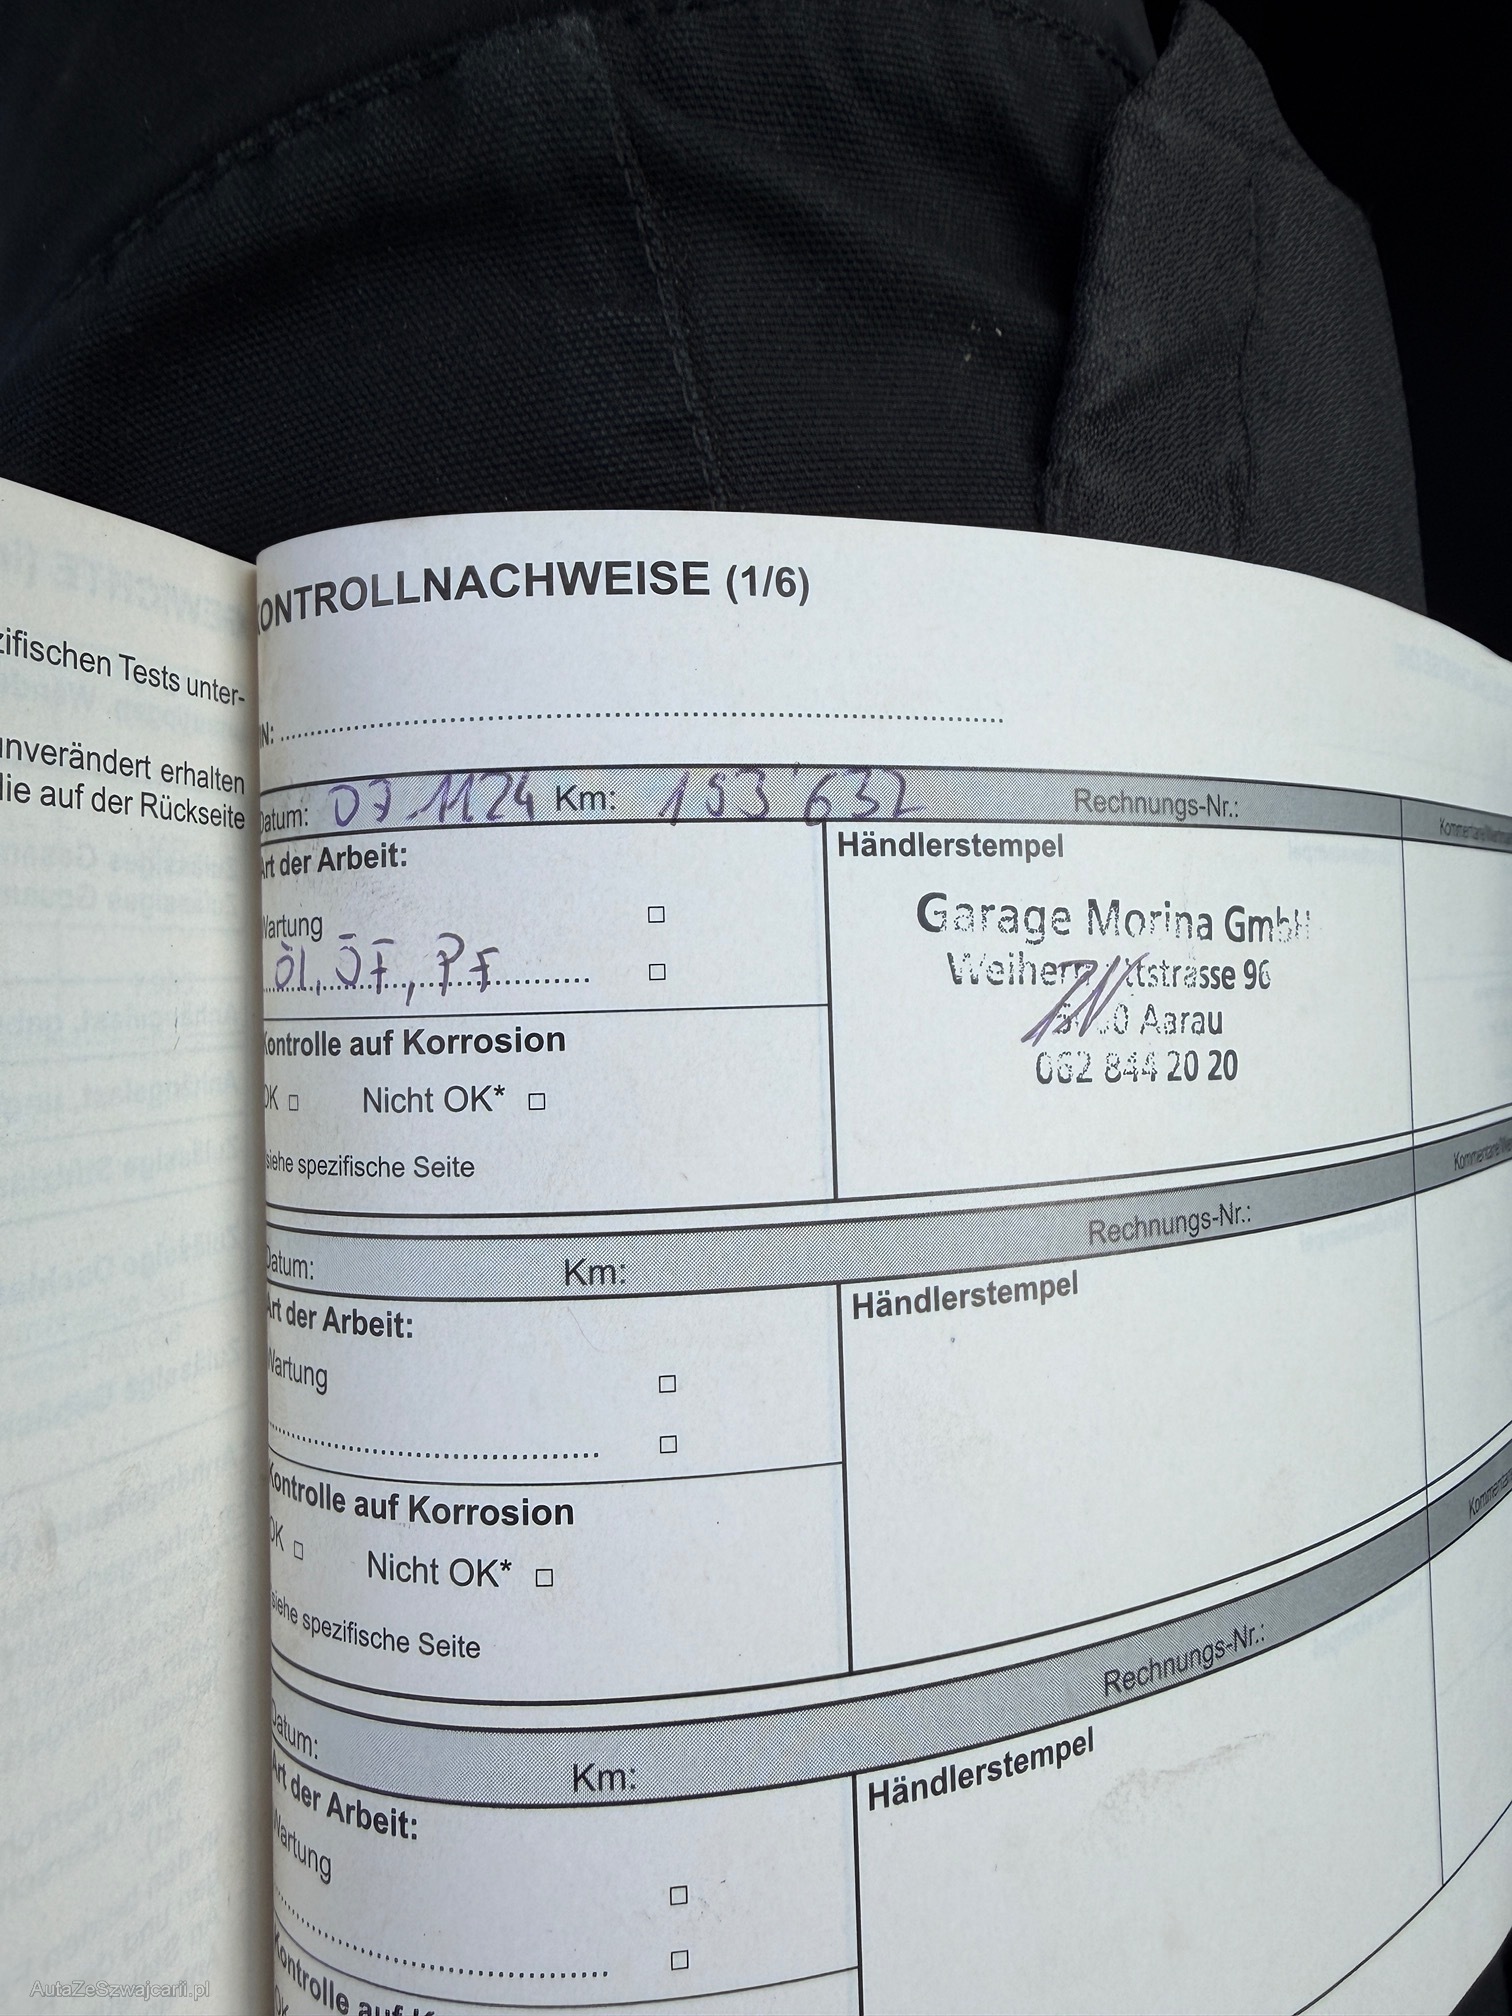 zifischen Tests unter-
unverändert erhalten
die auf der Rückseite
KONTROLLNACHWEISE (1/6)
IN:
Datum: 07.11.24 Km: 153'632 Rechnungs-Nr.:
Art der Arbeit:
Wartung
Öl, ÖF, PF
Kontrolle auf Korrosion
OK Nicht OK*
siehe spezifische Seite
Händlerstempel
Garage Morina GmbH
96
Aarau
062 844 20 20
Datum: Km: Rechnungs-Nr.:
Art der Arbeit:
Wartung
Kontrolle auf Korrosion
OK Nicht OK*
siehe spezifische Seite
Händlerstempel
Datum: Km: Rechnungs-Nr.:
Art der Arbeit:
Wartung
Kontrolle auf
OK
Händlerstempel
AutaZeSzwajcarii.pl